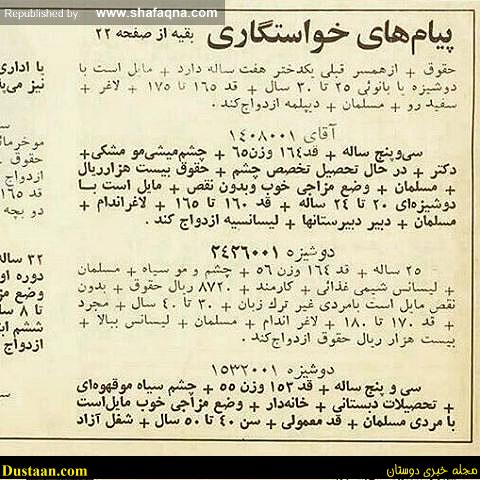 Republished by: www.shafaqna.com
پیام‌های خواستگاری بقیه از صفحه ۲۲
حقوق + ازهمسر قبلی یکدختر هفت ساله دارد + مایل است با
دوشیزه یا بانوئی ۲۵ تا ۳۰ سال + قد ۱۶۵ تا ۱۷۵ + لاغر +
سفید رو + مسلمان + دیپلمه ازدواج‌کند.
آقای ۱۴۰۸۰۰۱
سی‌وپنج ساله + قد۱۶۴ وزن۶۵ + چشم‌میشی‌مو مشکی+
دکتر + در حال تحصیل تخصص چشم + حقوق بیست هزارریال
+ مسلمان + وضع مزاجی خوب وبدون نقص + مایل است بـا
دوشیزه‌ای ۲۰ تا ۲۴ ساله + قد ۱۶۰ تا ۱۶۵ + لاغراندام +
مسلمان + دبیر دبیرستانها + لیسانسیه ازدواج کند.
دوشیزه ۲۴۲۶۰۰۱
۲۵ ساله + قد ۱۶۴ وزن ۵۶ + چشم و مو سیاه + مسلمان
+ لیسانس شیمی غذائی + کارمند + ۸۷۲۰ ریال حقوق + بدون
نقص مایل است بامردی غیر ترك زبان + ۳۰ تا ۴۰ سال + مجرد
+ قد ۱۷۰ تا ۱۸۰ + لاغر اندام + مسلمان + لیسانس ببالا +
بیست هزار ریال حقوق ازدواج‌کند.
دوشیزه ۱۵۳۲۰۰۱
سی و پنج ساله + قد ۱۵۳ وزن ۵۵ + چشم سیاه موقهوه‌ای
+ تحصیلات دبستانی + خانه‌دار + وضع مزاجی خوب مایل‌است
با مردی مسلمان + قد معمولی + سن ۴۰ تا ۵۰ سال + شغل آزاد
با اداری
نیز می
موخرمائ
حقوق
ازدواج
قد ۱۶۵
دو بچه
۳۲ ساله
دوره او
وضع مز
تا ۸ سا
مجرد
ششم ابت
ازدواج
Dustaan.com
مجله خبری دوستان